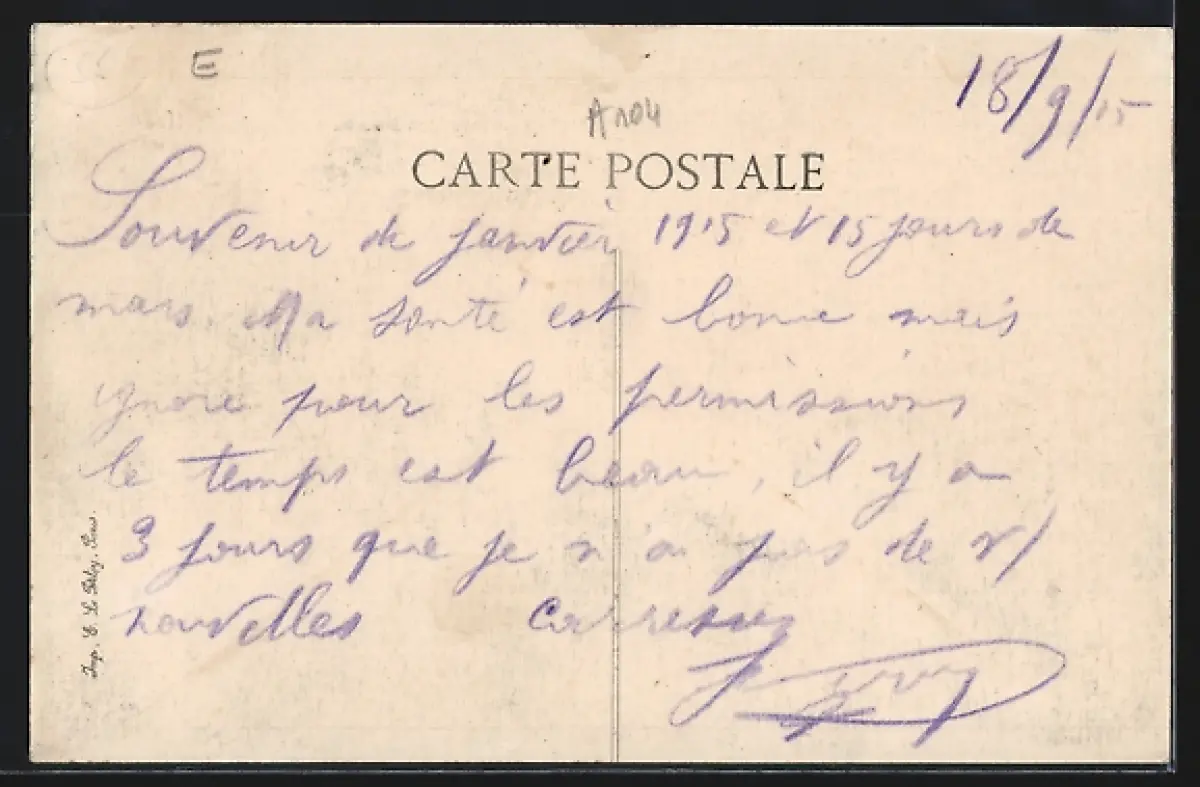 E
18/9/15
A104
CARTE POSTALE
Souvenir de janvier 1915 et 15 jours de
mars. Ma santé est bonne mais
ignore pour les permissions
le temps est beau, il y a
3 jours que je n'ai pas de v/
nouvelles Carresses
Imp. E. Le Deley, Paris.